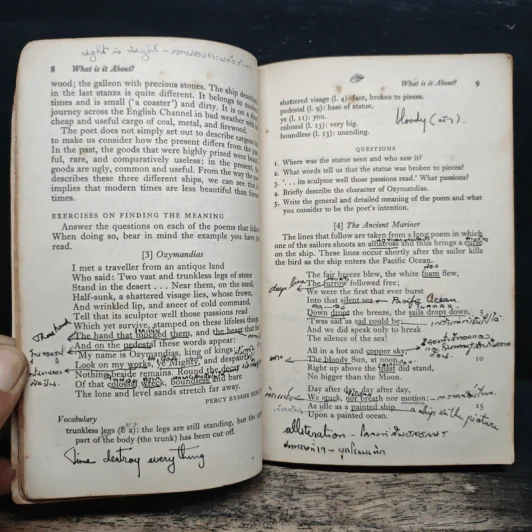 right is right -
8 What is it About?
wood; the galleon with precious stones. The ship described
in the last stanza is quite different. It belongs to modern
times and is small ('a coaster') and dirty. It is on a
journey across the English Channel in bad weather with
cheap and useful cargo of coal, metal, and firewood.
The poet does not simply set out to describe cargoes
to make us consider how the present differs from the past.
In the past, the goods that were highly prized were
ful, rare, and comparatively useless; in the present,
goods are ugly, common and useful. From the way the
describes these three different ships, we can see that
implies that modern times are less beautiful than former
times.
EXERCISES ON FINDING THE MEANING
Answer the questions on each of the poems that follow.
When doing so, bear in mind the example you have
read.
[3] Ozymandias
I met a traveller from an antique land
Who said: Two vast and trunkless legs of stone
Stand in the desert . . . Near them, on the sand,
Half-sunk, a shattered visage lies, whose frown,
And wrinkled lip, and sneer of cold command,
Tell that its sculptor well those passions read
Which yet survive, stamped on these lifeless things,
The hand that mocked them, and the heart that fed:
And on the pedestal these words appear:
'My name is Ozymandias, king of kings:
Look on my works, ye Mighty, and despair!'
Nothing beside remains. Round the decay
Of that colossal wreck, boundless and bare
The lone and level sands stretch far away.
PERCY BYSSHE
Vocabulary
trunkless legs (l. 2): the legs are still standing, but the upper
part of the body (the trunk) has been cut off.
Time destroy everything
What is it About? 9
shattered visage (l. 4): face, broken to pieces.
pedestal (l. 9): base of statue.
ye (l. 11): you.
colossal (l. 13): very big.
boundless (l. 13): unending.
bloody
QUESTIONS
1. Where was the statue seen and who saw it?
2. What words tell us that the statue was broken to pieces?
3. '. . . its sculptor well those passions read.' What passions?
4. Briefly describe the character of Ozymandias.
5. Write the general and detailed meaning of the poem and what
you consider to be the poet's intention.
[4] The Ancient Mariner
The lines that follow are taken from a long poem in which
one of the sailors shoots an albatross and thus brings a curse
on the ship. These lines occur shortly after the sailor kills
the bird as the ship enters the Pacific Ocean.
The fair breeze blew, the white foam flew,
The furrow followed free;
We were the first that ever burst
Into that silent sea. Pacific Ocean
Down dropt the breeze, the sails dropt down,
'Twas sad as sad could be;
And we did speak only to break
The silence of the sea!
All in a hot and copper sky,
The bloody Sun, at noon, 10
Right up above the mast did stand,
No bigger than the Moon.
Day after day, day after day,
We stuck, nor breath nor motion;
As idle as a painted ship a ship with picture 15
Upon a painted ocean.
alliteration -